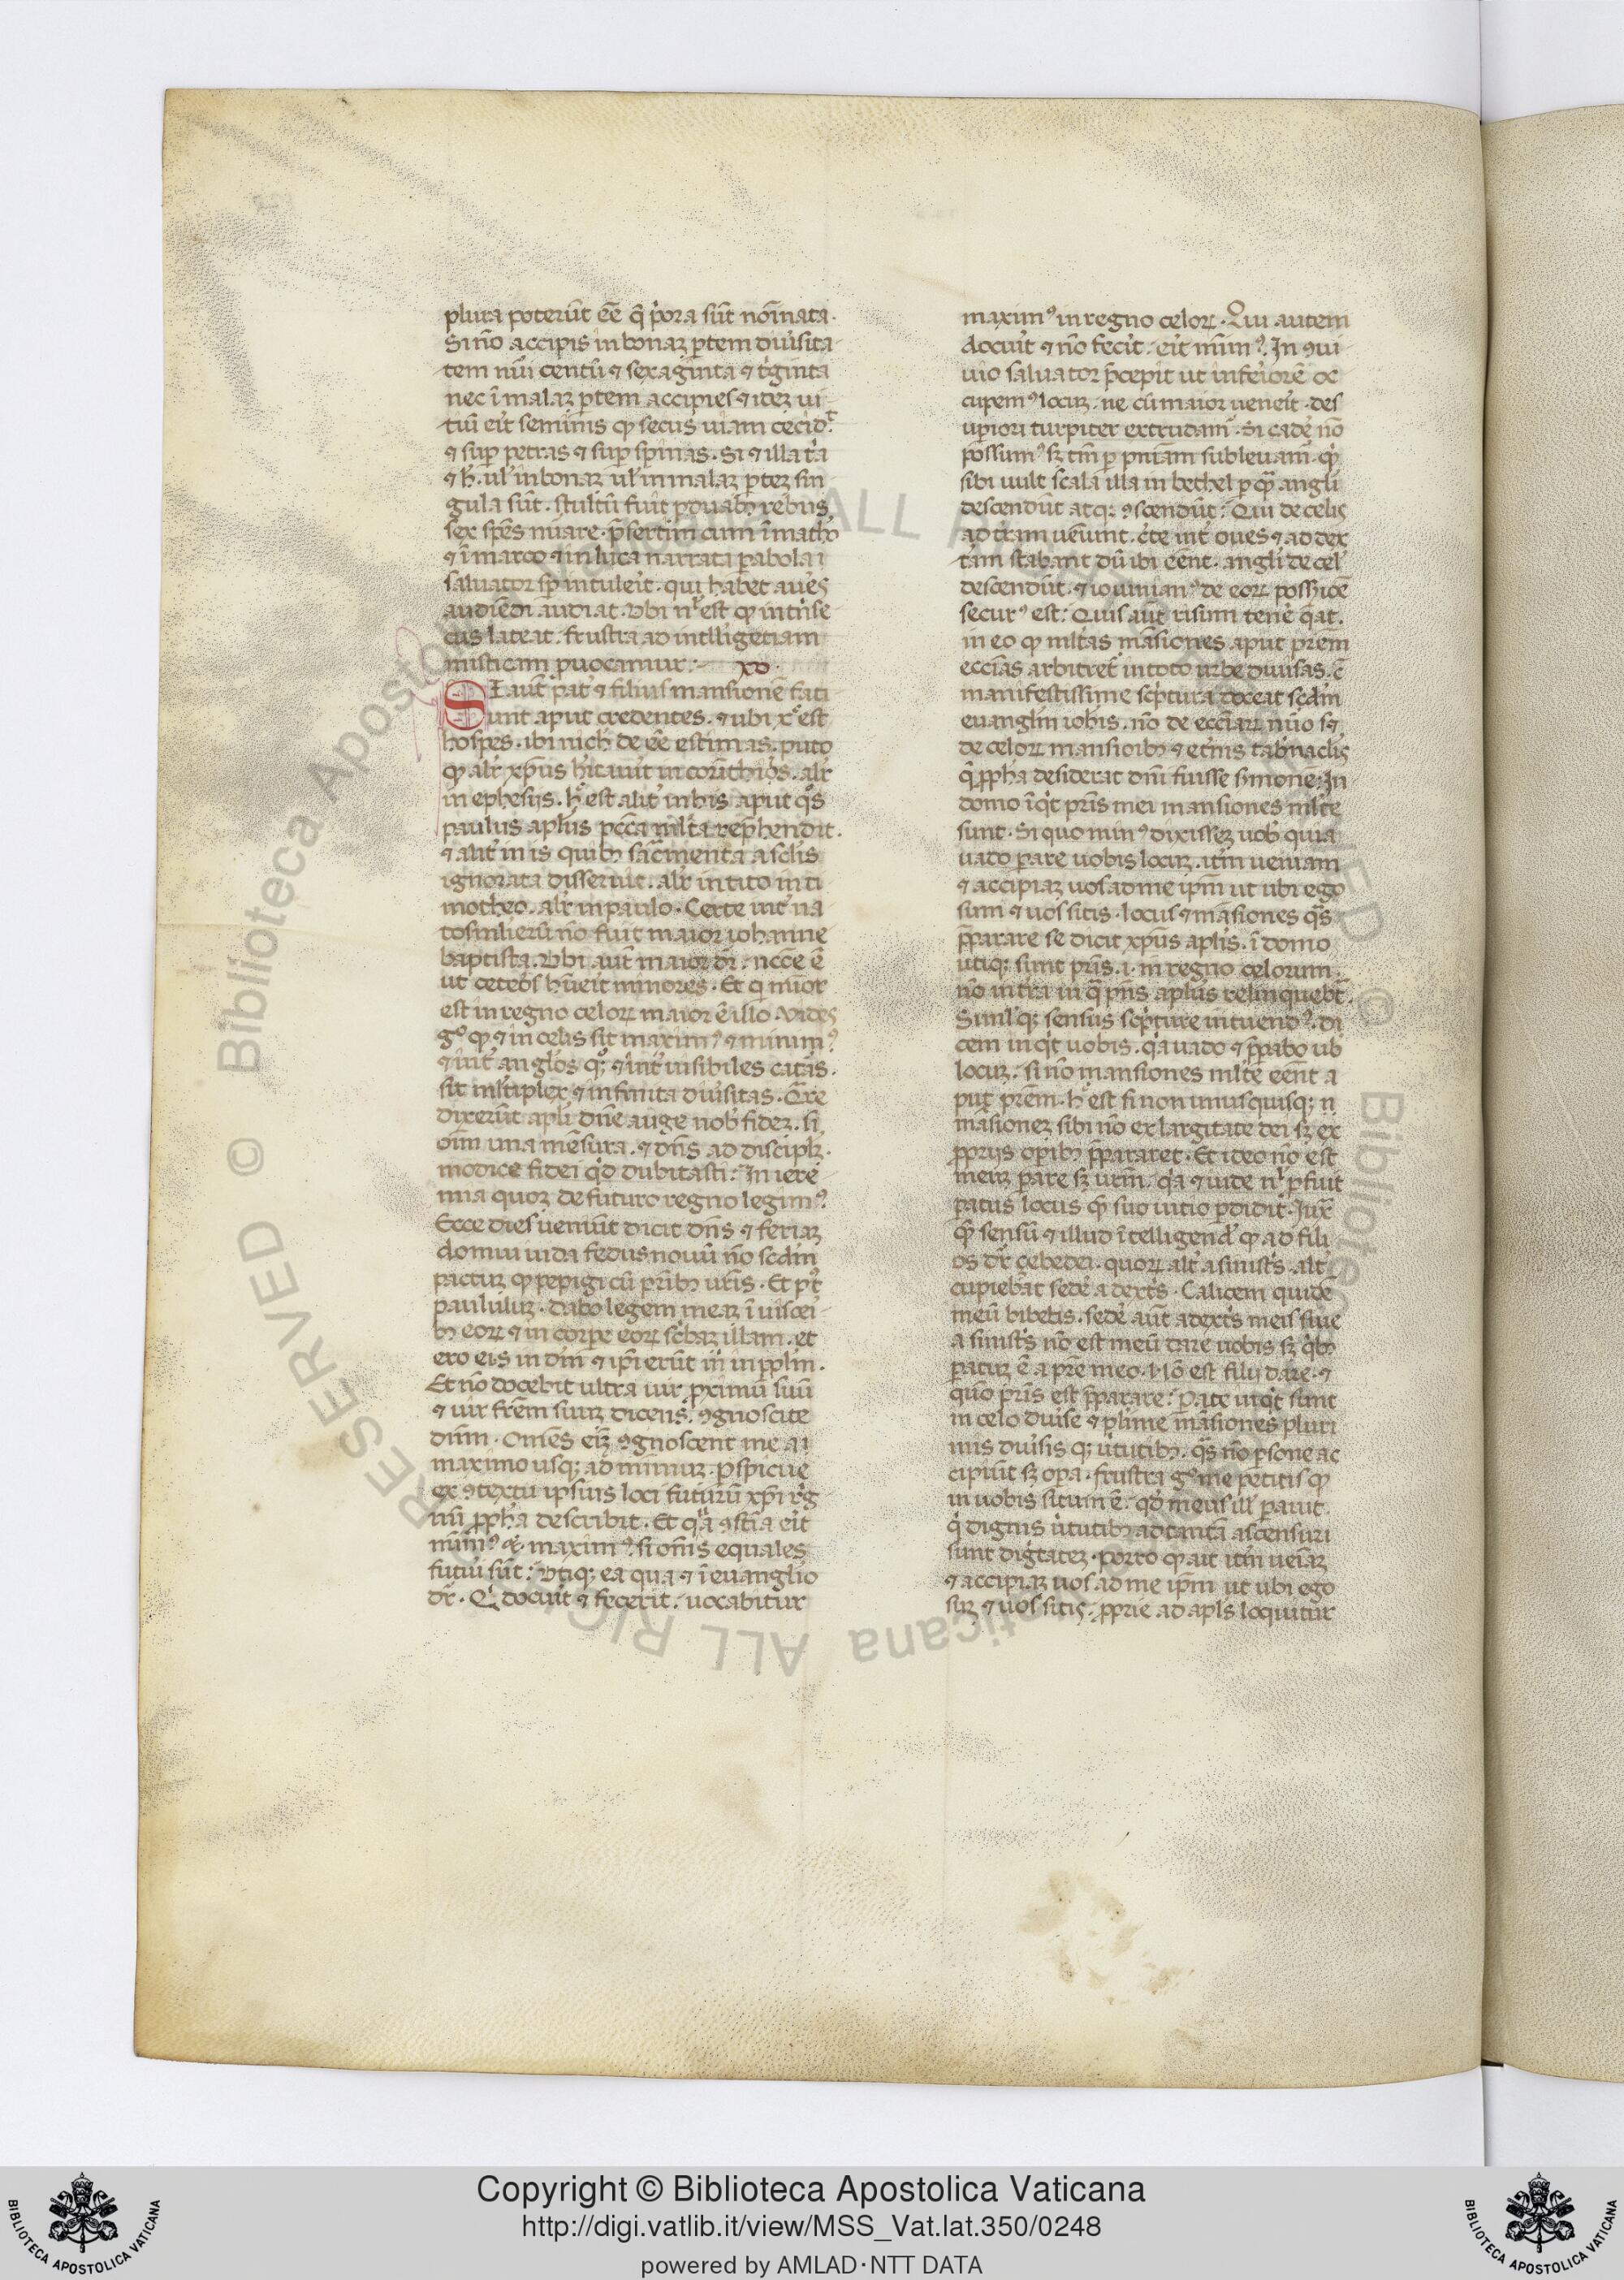 plura poterūt eē q̄ pora sūt noīnata.
Si nō accipis in bonaꝫ ꝑtem diuisita
tem nūi centū ⁊ sexaginta ⁊ tiginta
nec ī malaꝫ ꝑtem accipies ⁊ iteꝫ ui
tiū eīt seminis qꝫ secus uiam cecid
⁊ suꝑ petras ⁊ suꝑ spinas. Si ⁊ illa tia
⁊ h̄. ul' in bonaꝫ ul' in malaꝫ ꝑteꝫ sin
gula sūt. stultū fuit ꝑ duabꝫ rebus
sex spēs nūare. p̄sertim cum ī math'o
⁊ ī marco ⁊ in luca narrata ꝑabola
saluator sꝑ intuleit. qui habet aures
audiēdi audiat. Vbi nl' est qꝫ intise
cus lateat. frustra ad intlligētiam
misticam ꝓuocamur. xo.
SI aūt pat' ⁊ filius mansionē faci
unt aput credentes. ⁊ ubi xc est
hospes. ibi nich' deēe estimas. puto
qꝫ alr' xpūs h'itauit in corīthijs. alr'
in ephesijs. h' est alit' in his aput qos
paulus aplūs pccā mlta rep̄hendit.
⁊ alit' in is quibꝫ sac̄menta a sclis
ignorata disseruit. alr' in tito in ti
motheo. alr' in paulo. Certe int' na
tos mlierū nō fuit maior iohanne
baptista. Vbi aūt maior dr'. ncc̄e ē
ut ceteos h̄ueit minores. Et q minor
est in regno celoꝝ maior ē illo. Vides
go qꝫ ⁊ in celis sit maximꝰ ⁊ minimꝰ
⁊ int' anglos qoꝫ ⁊ int' uisibiles c̄atās.
sit mltiplex ⁊ infinita diuisitas. Qare
dixerūt apli dn̄e auge nob' fideꝫ. si
oīm una mēsura. ⁊ dn̄s ad disciplꝫ.
modice fidei qd dubitasti. In iere
mia quoꝫ de futuro regno legimꝰ.
Ecce dies ueniūt dicit dn̄s ⁊ feriaꝫ
domui iuda fedus nouū nō scdm
pactuꝫ qꝫ pepigi cū pribꝫ uris. Et pꝰt
paululuꝫ. dabo legem meaꝫ ī uiscei
bꝫ eoꝝ ⁊ in corpe eoꝝ sc̄baꝫ illam. et
ero eis in dm̄ ⁊ ipi erūt m̄ in pplm̄.
Et nō docebit ultra uir ꝓximū suū
⁊ uir frēm suuꝫ dicens. ꝯgnoscite
dūm. Omēs eīꝫ ꝯgnoscent me a
maximo usqꝫ ad mīmuꝫ. ꝑspicue
ex ꝯtextu ipsius loci futurū xpi reg
nū ꝓpha describit. Et qa ꝯstīa eīt
mīmꝰ ⁊ maximꝰ. si omīs equales
futuri sūt. Vtiqꝫ ea qua ⁊ ī euanglio
dr'. Qi docuit ⁊ fecerit. uocabitur
maximꝰ in regno celoꝝ. Qui autem
docuit ⁊ nō fecit. eīt mīmꝰ. In ꝯui
uio saluator p̄cepit ut inferiorē oc
cupemꝰ locuꝫ. ne cū maior ueneit. de s
uꝑiori turpiter extrudam̄. Si cade nō
possumꝰ sꝫ tm̄ ꝑ pn̄iam subleuam̄. qd
sibi uult scala illa in bethel ꝑ qꝫ angli
descendūt atqꝫ ꝯscendūt. Qui de celis
ad tram ueīunt. c̄te int' oues ⁊ ad dex
tam stabant dū ibi eēnt. angli de cel'
descendūt. ⁊ iouinianꝰ de eoꝝ possiōe
securꝰ est. Quis aūt risum tene qeat.
in eo qꝫ mltas māsiones aput prem
ecc̄ias arbitret' in toto urbe diuisas. c̄
manifestissime sc̄ptura doceat scdm
euanglm iohis. nō de ecciaꝝ nūo sꝫ
de celoꝝ mansioibꝫ ⁊ et̄nis tab̄naclis
q ꝓpha desiderat dm̄ fuisse s̄monē. In
domo īqt pris mei mansiones mlte
sunt. Si quo minꝰ dixisseꝫ uob' quia
uado ꝑare uobis locuꝫ. itm̄ ueniam
⁊ accipiaꝫ uos ad me ipm̄ ut ubi ego
sum ⁊ uos sitis. locus ⁊ māsiones qas
p̄parare se dicit xpūs aplis. ī domo
utiqꝫ sunt pris. i. in regno celorum.
nō in tra in qa pn̄s aplūs relinquebt.
Simlqꝫ sensus sc̄pture intuendꝰ. di
cem inqt uobis. qa uado ⁊ p̄parabo ub
locuꝫ. si nō mansiones mlte eent a
put prem. h' est si non unusquisqꝫ
māsioneꝫ sibi nō ex largitate dei sꝫ ex
ꝓprijs oꝑibꝫ p̄pararet. Et ideo nō est
meuꝫ ꝑare sꝫ urm. qa ⁊ iude nl' ꝓfuit
ꝑatus locus qꝫ suo uitio ꝑdidit. Iux
qꝫ sensū ⁊ illud ītelligend' qꝫ ad fili
os dr' cebedei. quoꝝ alt' a sinists alt'
cupiebat sede a dexts. Calicem quidē
meū bibetis. sede aūt a dexts meis siue
a sinists nō est meū dare uobis sꝫ qbꝫ
ꝑatuꝫ ē a pre meo. Nō est filij dare. ⁊
quō pris est p̄parare. Pate inqt sunt
in celo diuise ⁊ plime māsiones pluri
mis diuisis qꝫ uirtutibꝫ. qas nō ꝑsone ac
cipiūt sꝫ oꝑa. frustra go me petitis qꝫ
in uobis situm ē. qd meus ill' ꝑauit.
q dignis uirtutibꝫ ad tantā ascensuri
sunt digitateꝫ. porro qꝫ ait itm̄ ueīaꝫ
⁊ accipiaꝫ uos ad me ipm̄ ut ubi ego
suꝫ ⁊ uos sitis. ꝓprie ad apls loquitur
Copyright © Biblioteca Apostolica Vaticana
http://digi.vatlib.it/view/MSS_Vat.lat.350/0248
powered by AMLAD·NTT DATA